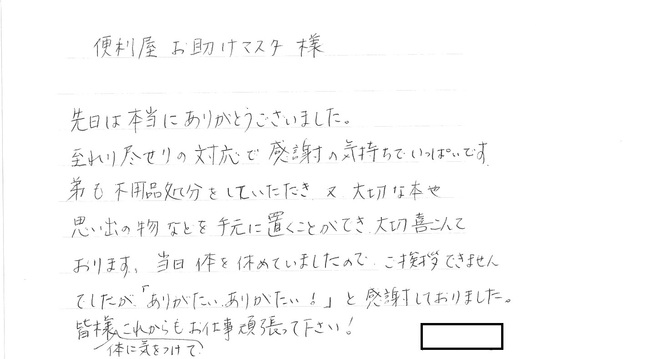 便利屋 お助けマスタ 様
先日は本当にありがとうございました。
至れり尽せりの対応で感謝の気持ちでいっぱいです
弟も不用品処分をしていただき 又 大切な本や
思い出の物などを手元に置くことができ 大切喜こんで
おります。当日体を休めていましたので ご挨拶できません
でしたが「ありがたい、ありがたい!」と感謝しておりました。
皆様これからもお仕事頑張って下さい!
体に気をつけて